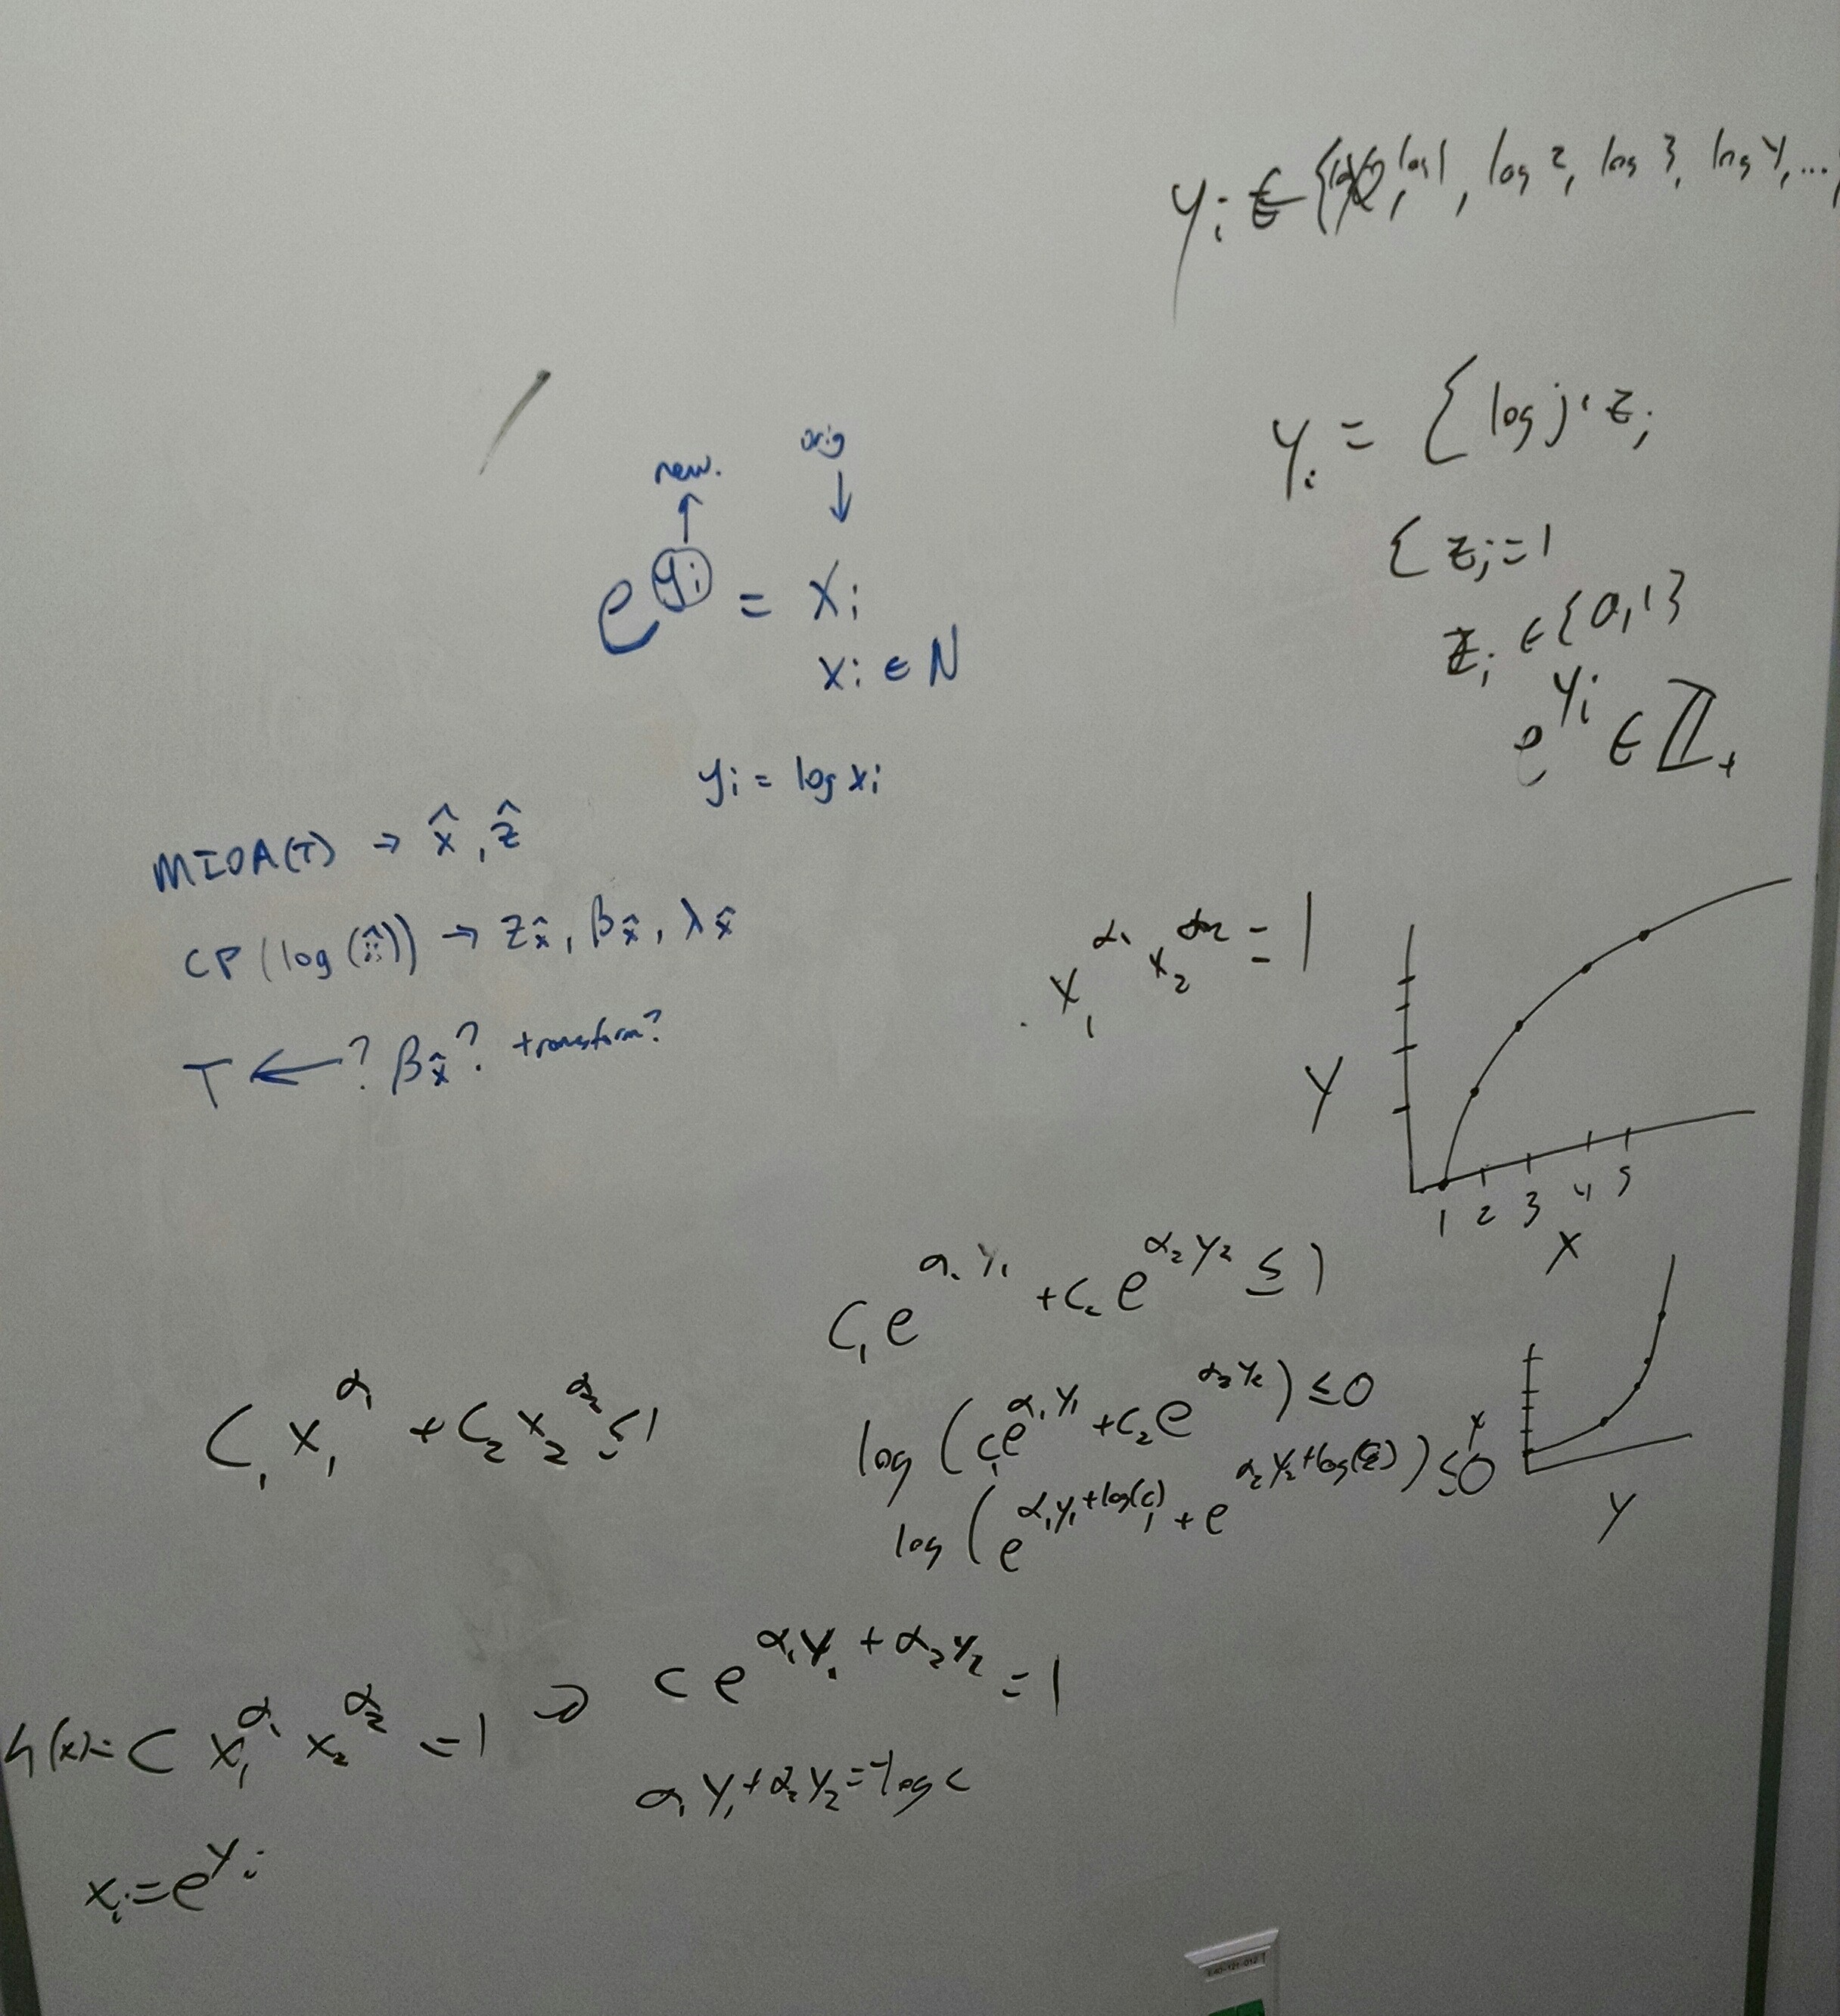 y_i ∈ { log 1, log 2, log 3, log 4, ...
y_i = Σ log j · z_j
Σ z_j = 1
z_j ∈ {0,1}
e^{y_i} ∈ ℤ_+
new. orig
↑ ↓
e^{y_i} = x_i
x_i ∈ N
y_i = log x_i
MIOA(T) → x̂, ẑ
CP(log(x̂)) → z_x̂, β_x̂, λ_x̂
T ← ? β_x̂ ? transform?
x_1^{α_1} x_2^{α_2} = 1
Y
1 2 3 4 5
X
C_1 e^{α_1 y_1} + C_2 e^{α_2 y_2} ≤ 1
C_1 x_1^{α_1} + C_2 x_2^{α_2} ≤ 1
log (C_1 e^{α_1 y_1} + C_2 e^{α_2 y_2}) ≤ 0
log (e^{α_1 y_1 + log(C_1)} + e^{α_2 y_2 + log(C_2)}) ≤ 0
X
Y
h(x) = C x_1^{α_1} x_2^{α_2} = 1 ⇒ C e^{α_1 y_1 + α_2 y_2} = 1
α_1 y_1 + α_2 y_2 = -log C
x_i = e^{y_i}